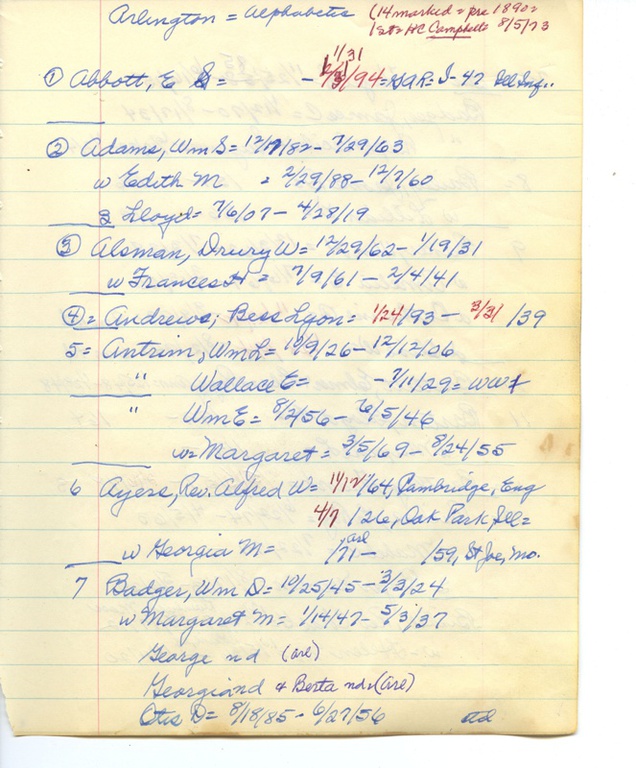 Arlington = Alphabetic (14 marked = pre 1890=
1st = HC Campbell 8/5/73
1/31
① Abbott, E S = - /31/94 = GAR = I-42 Ill Inf..
② Adams, Wm S = 12/17/82 - 7/29/63
w Edith M = 2/29/88 - 12/7/60
3 Lloyd = 7/6/07 - 4/28/19
③ Alsman, Drury W = 12/29/62 - 1/19/31
w Frances A = 7/9/61 - 2/4/41
④ = Andrews, Bess Lyon = 1/24/93 - 3/31 /39
5 = Antrim, Wm L = 10/9/26 - 12/12/06
" Wallace E = - 7/11/29 = WW I
" Wm E = 8/2/56 - 6/5/46
w = Margaret = 3/5/69 - 8/24/55
6 Ayers, Rev. Alfred W = 11/12/64, Cambridge, Eng
4/7 /26, Oak Park, Ill =
arl
w Georgia M = /71 - /59, St Joe, Mo.
7 Badger, Wm D = 10/25/45 - 3/3/24
w Margaret M = 1/14/47 - 5/3/37
George nd (arl)
Georgia nd & Berta nd (arl)
Otis D = 8/18/85 - 6/27/56